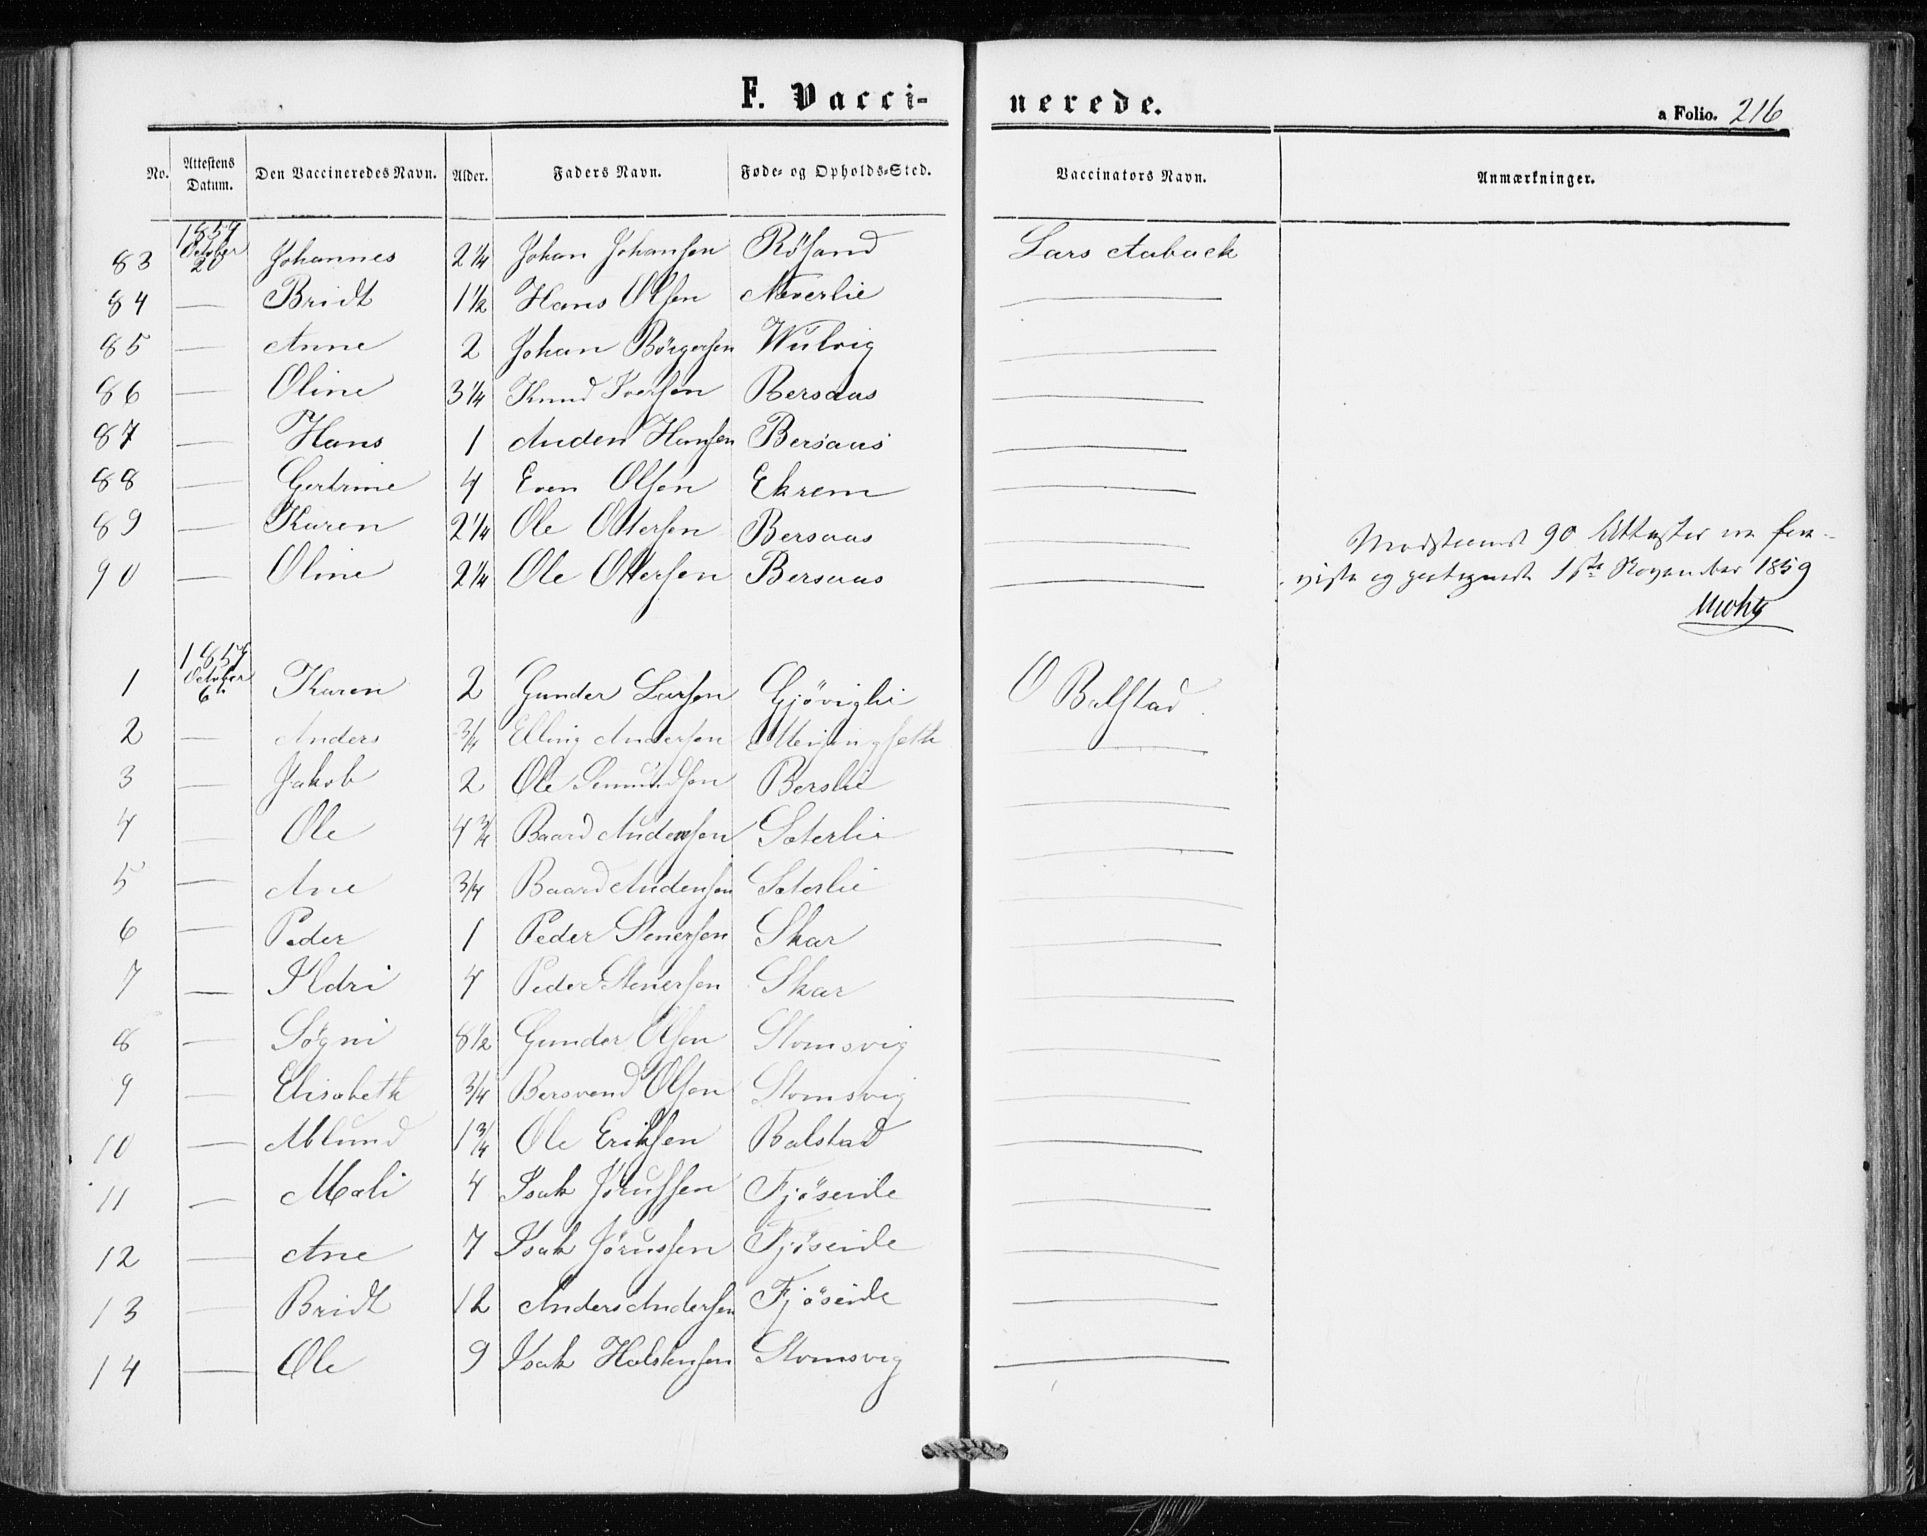 F. Vacci-
nerede.
a Folio. 216
No. Attestens Datum. Den Vaccineredes Navn. Alder. Faders Navn. Føde- og Opholds-Sted. Vaccinators Navn. Anmærkninger.
83 1859 October 20 Johannes 2 1/4 Johan Johansen Rösand Lars Aaback
84 — Bridt 1 1/2 Hans Olsen Neverlie —
85 — Anne 2 Johan Börgersen Wulvig —
86 — Oline 3 1/4 Knud Iversen Bersaas —
87 — Hans 1 Auden Hansen Bersaas —
88 — Gertrine 4 Even Olsen Ekrem —
89 — Karen 2 1/4 Ole Ottersen Bersaas —
90 — Oline 2 1/4 Ole Ottersen Bersaas —
90 Attester
1ste November 1859
1 1859 October 6 Karen 2 Gunder Larsen Gjöviglie O Balstad
2 — Anders 3/4 Elling Andersen —
3 — Jakob 2 Ole Berslie —
4 — Ole 4 3/4 Baard Audensen Sæterlie —
5 — Ane 3/4 Baard Audensen Sæterlie —
6 — Peder 1 Peder Stenersen Skar —
7 — Ildri 4 Peder Stenersen Skar —
8 — Sögni 8 1/2 Gunder Olsen Stomsvig —
9 — Elisabeth 3/4 Bersvend Olsen Stomsvig —
10 — 1 3/4 Ole Eriksen Balstad —
11 — Mali 4 Isak Jörussen Fjöseide —
12 — Ane 7 Isak Jörussen Fjöseide —
13 — Bridt 12 Anders Andersen Fjöseide —
14 — Ole 9 Isak Halstensen Stomsvig —